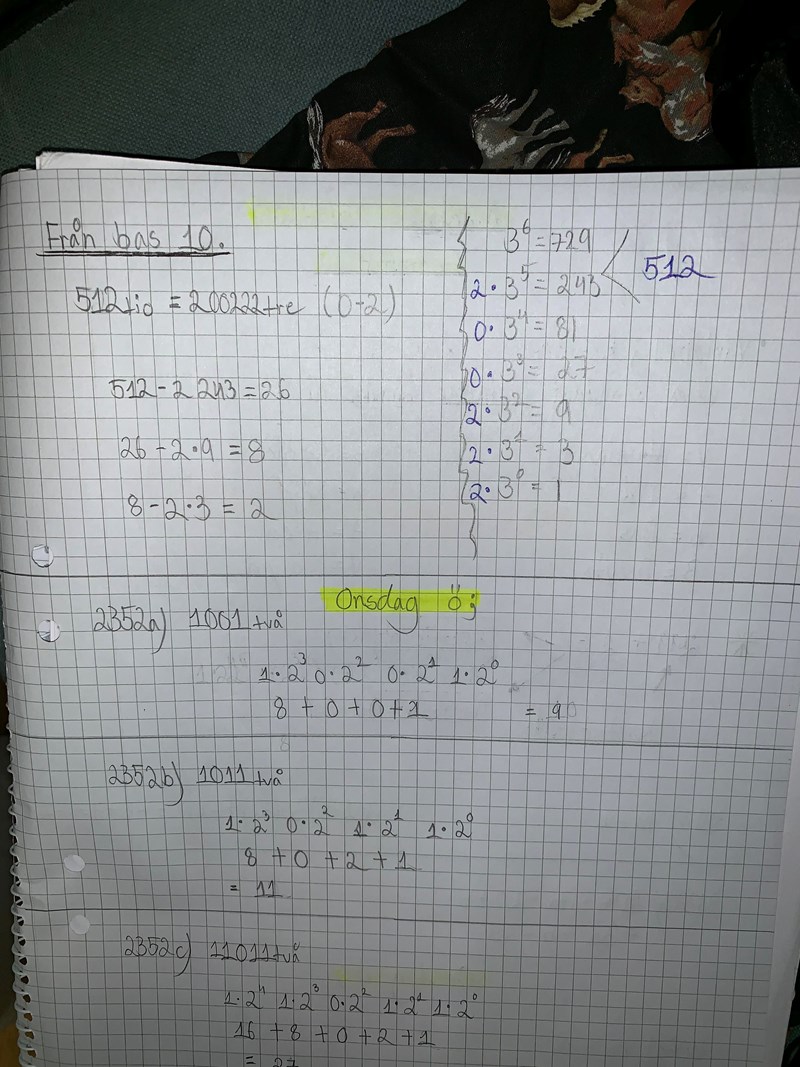 Från bas 10.
512tio = 200222tre (0-2)
512 - 2 243 = 26
26 - 2·9 = 8
8 - 2·3 = 2
3⁶ = 729
2·3⁵ = 243
512
0·3⁴ = 81
0·3³ = 27
2·3² = 9
2·3¹ = 3
2·3⁰ = 1
Onsdag ö:
2352a) 1001två
1·2³ 0·2² 0·2¹ 1·2⁰
8 + 0 + 0 + 1 = 9
2352b) 1011två
1·2³ 0·2² 1·2¹ 1·2⁰
8 + 0 + 2 + 1
= 11
2352c) 11011två
1·2⁴ 1·2³ 0·2² 1·2¹ 1·2⁰
16 + 8 + 0 + 2 + 1
= 27